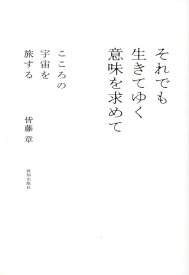 それでも
生きてゆく
意味を求めて
こころの
宇宙を
旅する
皆藤 章
致知出版社